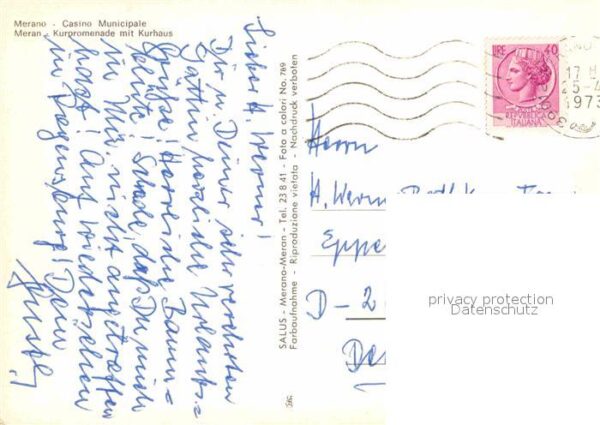 Merano - Casino Municipale
Meran - Kurpromenade mit Kurhaus
Lieber H. Werner!
Dir u. Deiner sehr verehrten
Gattin herzliche Urlaubs=
Grüsse! Herrliche Baum=
blüte! Schade, daß Du mich
in Mü. nicht angetroffen
hast! Auf Wiedersehen
in Regensburg! Dein
SALUS - Merano-Meran - Tel. 23 8 41 - Foto a colori No. 789
Farbaufnahme - Riproduzione vietata - Nachdruck verboten
LIRE 40
REPUBBLICA
ITALIANA
17
25-4
1973
Herrn
H. Wern
Eppe
D-2
privacy protection
Datenschutz